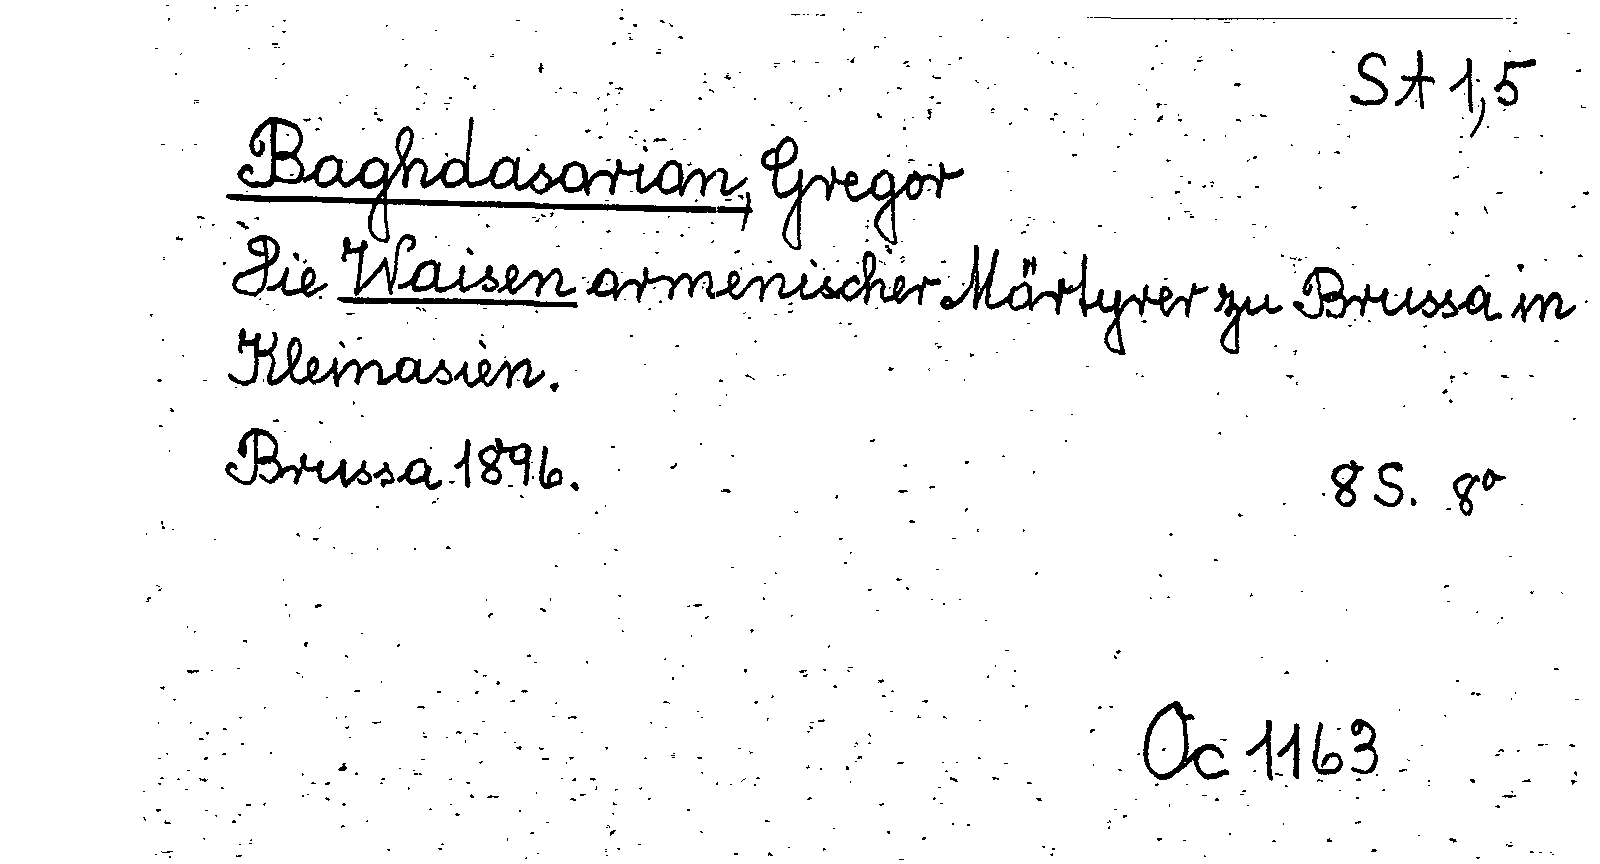 St 1,5
Baghdasarian, Gregor
Die Waisen armenischer Märtyrer zu Brussa in
Kleinasien.
Brussa 1896.
8 S. 8°
Oc 1163